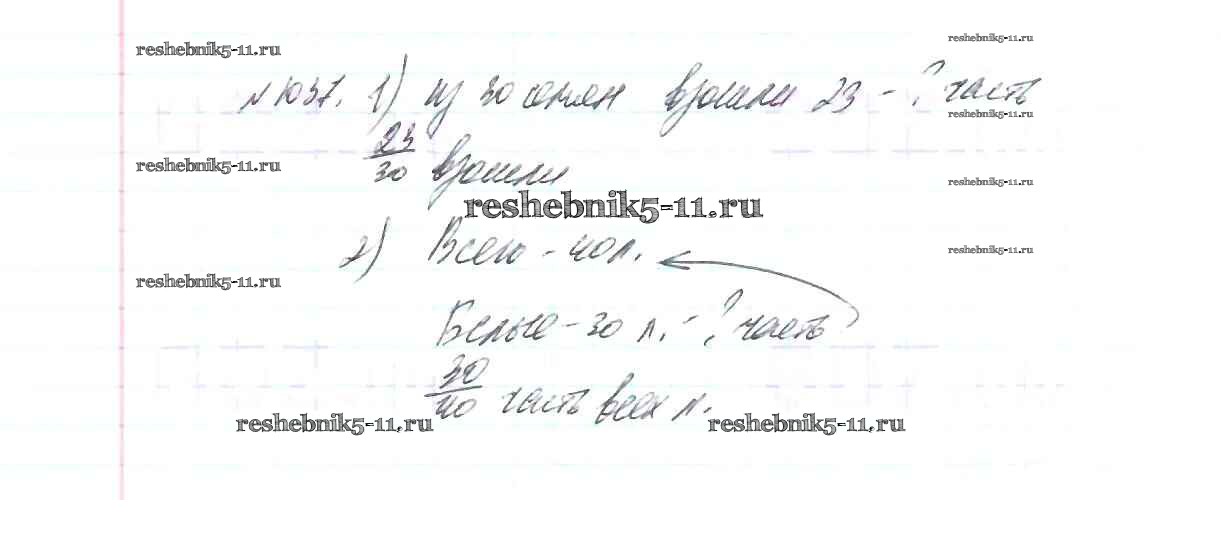 reshebnik5-11.ru
reshebnik5-11.ru
№ 1037. 1) из 30 семян взошли 23 - ? часть
reshebnik5-11.ru
23/30 взошли
reshebnik5-11.ru
reshebnik5-11.ru
reshebnik5-11.ru
2) Всего - 40 л.
reshebnik5-11.ru
reshebnik5-11.ru
Белые - 30 л. - ? часть
30/40 часть всех л.
reshebnik5-11.ru
reshebnik5-11.ru